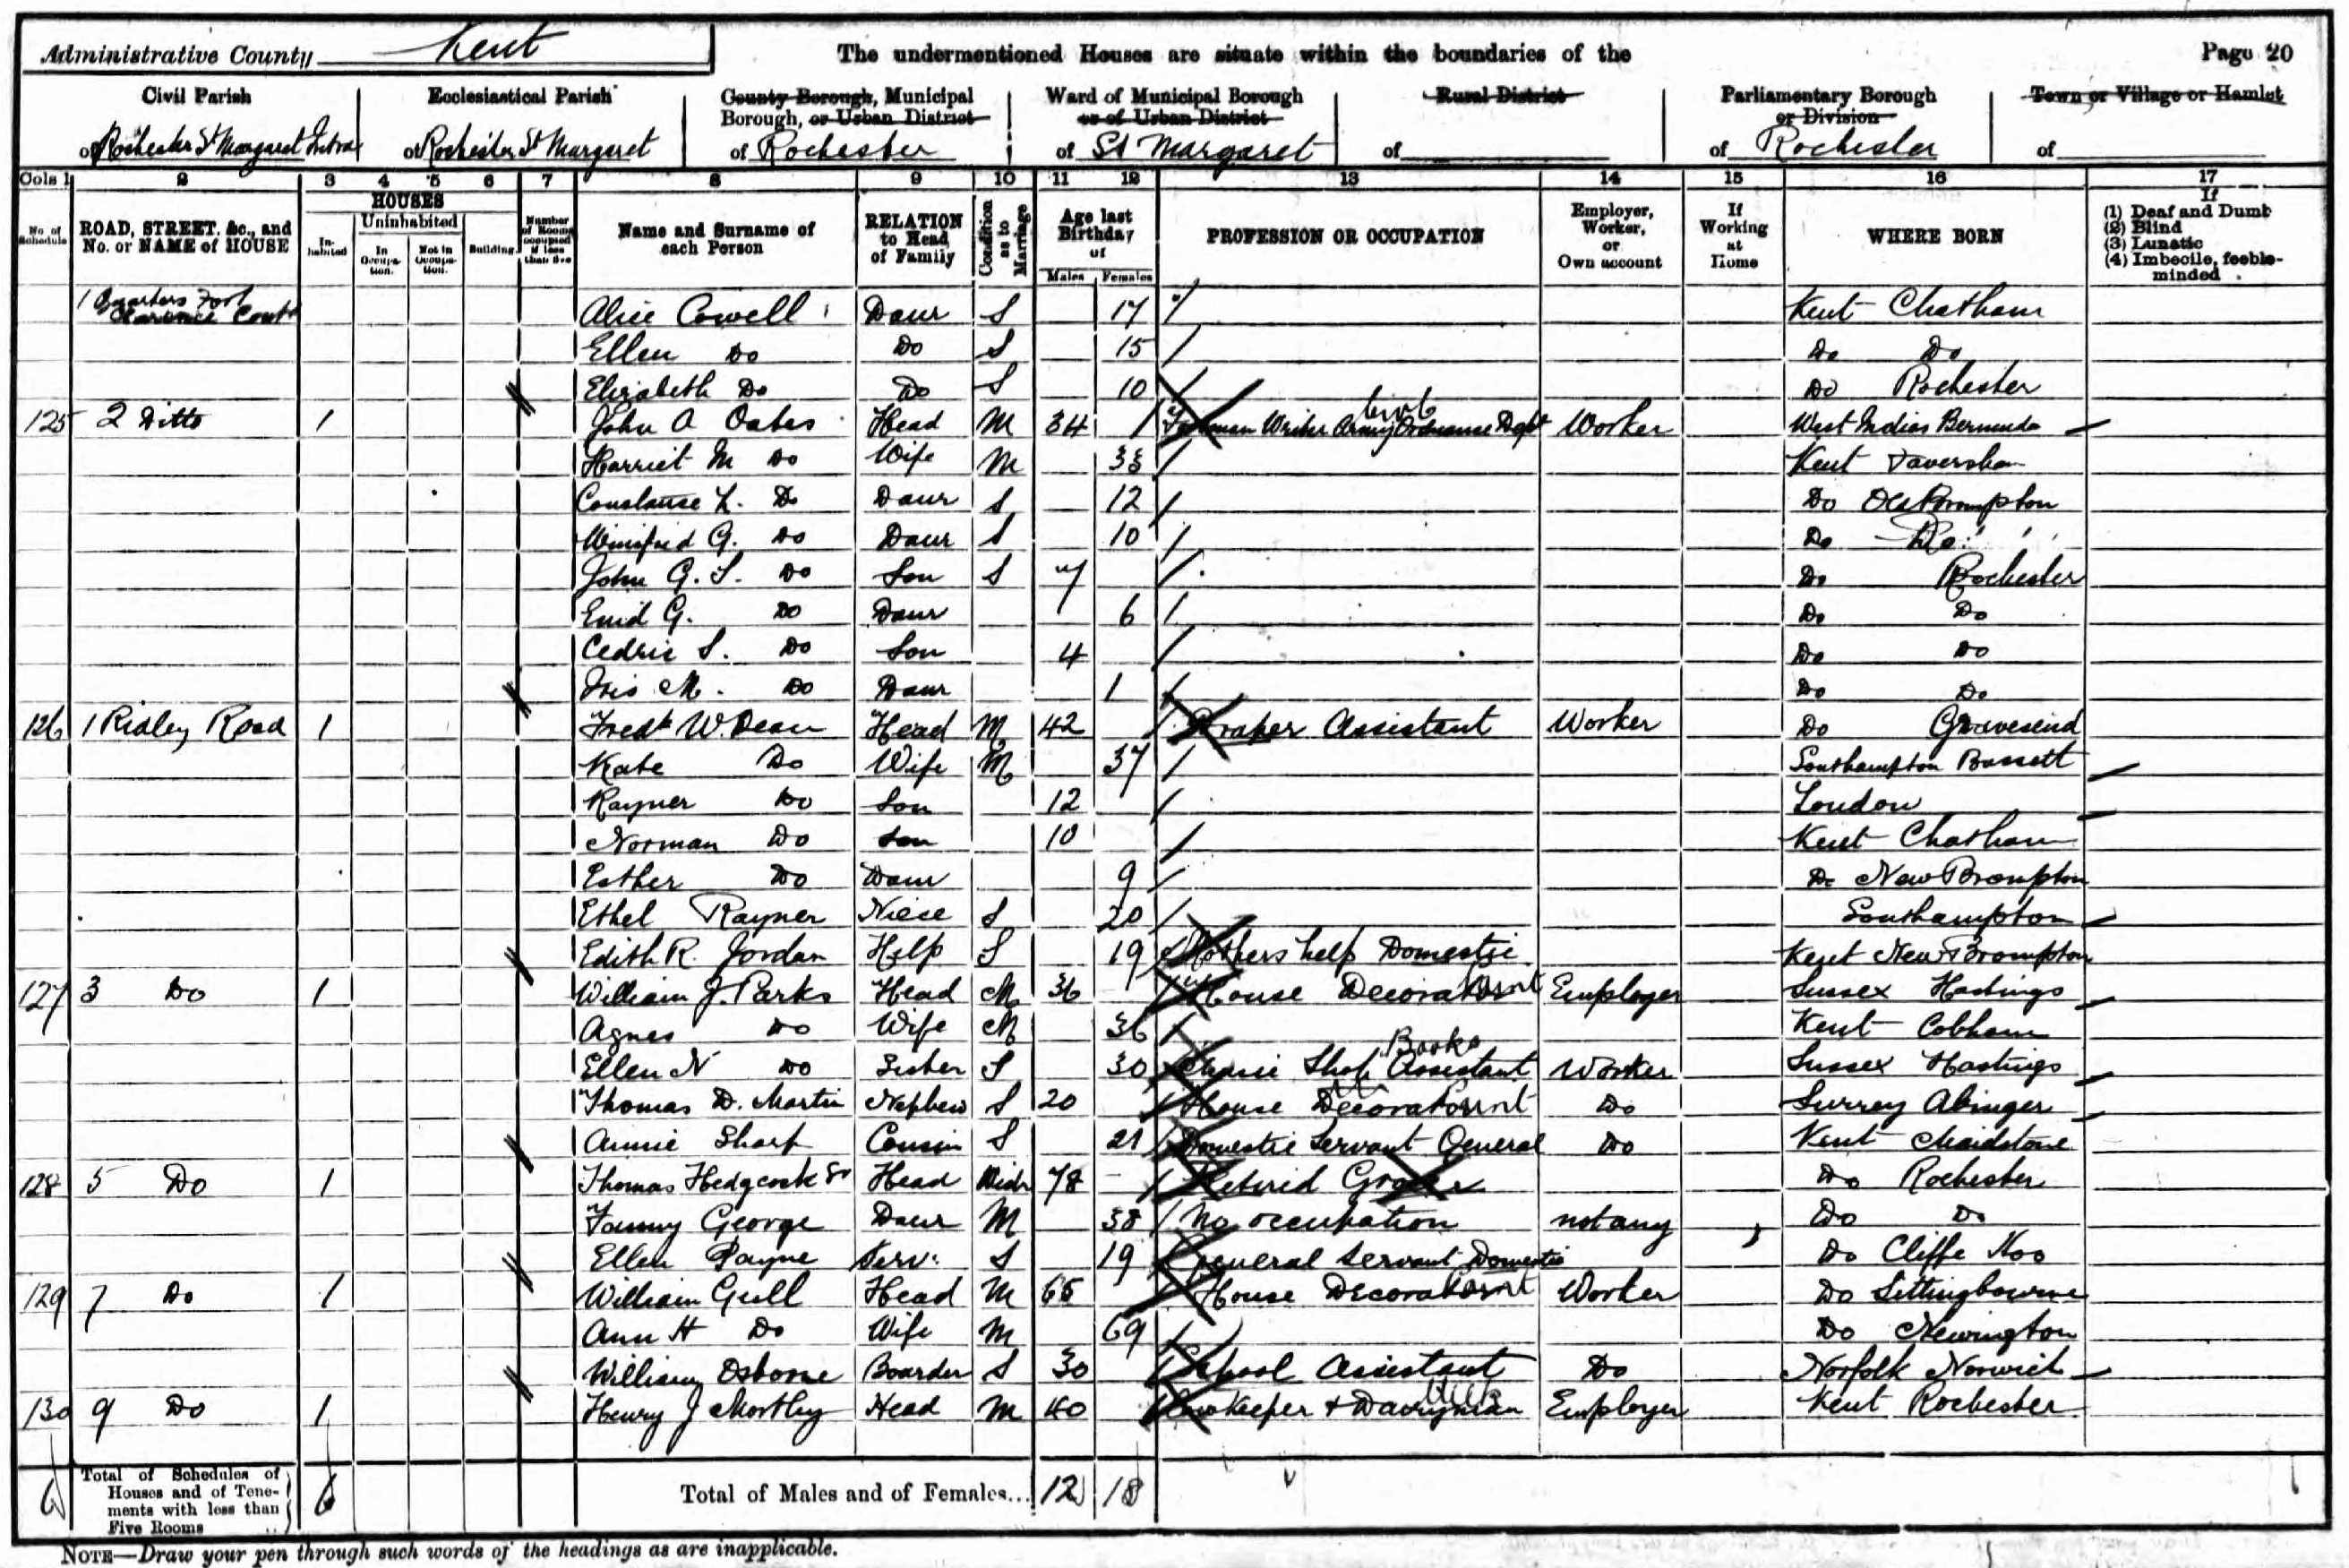 Administrative County Kent
The undermentioned Houses are situate within the boundaries of the
Page 20
Civil Parish
of Rochester St Margaret Intra
Ecclesiastical Parish
of Rochester St Margaret
County Borough, Municipal Borough, or Urban District
of Rochester
Ward of Municipal Borough or of Urban District
of St Margaret
Rural District
of
Parliamentary Borough or Division
of Rochester
Town or Village or Hamlet
of
Cols 1 2 3 4 5 6 7 8 9 10 11 12 13 14 15 16 17
No. of Schedule
ROAD, STREET, &c., and No. or NAME of HOUSE
HOUSES
Inhabited
Uninhabited
In Occupation.
Not in Occupation.
Building.
Number of Rooms occupied if less than five
Name and Surname of each Person
RELATION to Head of Family
Condition as to Marriage
Age last Birthday of
Males Females
PROFESSION OR OCCUPATION
Employer, Worker, or Own account
If Working at Home
WHERE BORN
If
(1) Deaf and Dumb
(2) Blind
(3) Lunatic
(4) Imbecile, feeble-minded
1 Quarters Fort Clarence Cont Alice Cowell Daur S 17 Kent Chatham
Ellen Do Do S 15 Do Do
Elizabeth Do Do S 10 Do Rochester
125 2 Ditto 1 John A Oates Head M 34 Writer Army Ordnance Dept Worker West Indies Bermuda
Harriet M Do Wife M 33 Kent Faversham
Constance L. Do Daur S 12 Do Old Brompton
Winifred G. Do Daur S 10 Do Do
John G. S. Do Son S 7 Do Rochester
Enid G. Do Daur 6 Do Do
Cedric S. Do Son 4 Do Do
Iris M. Do Daur 1 Do Do
126 1 Ridley Road 1 Fredk W. Dean Head M 42 Draper Assistant Worker Do Gravesend
Kate Do Wife M 37 Southampton Bassett
Rayner Do Son 12 London
Norman Do Son 10 Kent Chatham
Esther Do Daur 9 Do New Brompton
Ethel Rayner Niece S 20 Southampton
Edith R. Jordan Help S 19 Mothers help Domestic Kent New Brompton
127 3 Do 1 William J. Parks Head M 36 House Decorator Employer Sussex Hastings
Agnes Do Wife M 36 Kent Cobham
Ellen N Do Sister S 30 Shop Assistant Books Worker Sussex Hastings
Thomas D. Martin Nephew S 20 House Decorator Do Surrey Abinger
Annie Sharp Cousin S 21 Domestic Servant General Do Kent Maidstone
128 5 Do 1 Thomas Hedgcock Sr Head Widr 78 Retired Grocer Do Rochester
Fanny George Daur M 38 No occupation not any Do Do
Ellen Payne Serv. S 19 General Servant Domestic Do Cliffe Hoo
129 7 Do 1 William Gull Head M 65 House Decorator Worker Do Sittingbourne
Ann H Do Wife M 69 Do Newington
William Osborne Boarder S 30 School Assistant Do Norfolk Norwich
130 9 Do 1 Henry J Mortley Head M 40 Cow Keeper + Dairyman Milk Employer Kent Rochester
6 Total of Schedules of Houses and of Tenements with less than Five Rooms 6 Total of Males and of Females... 12 18
NOTE—Draw your pen through such words of the headings as are inapplicable.